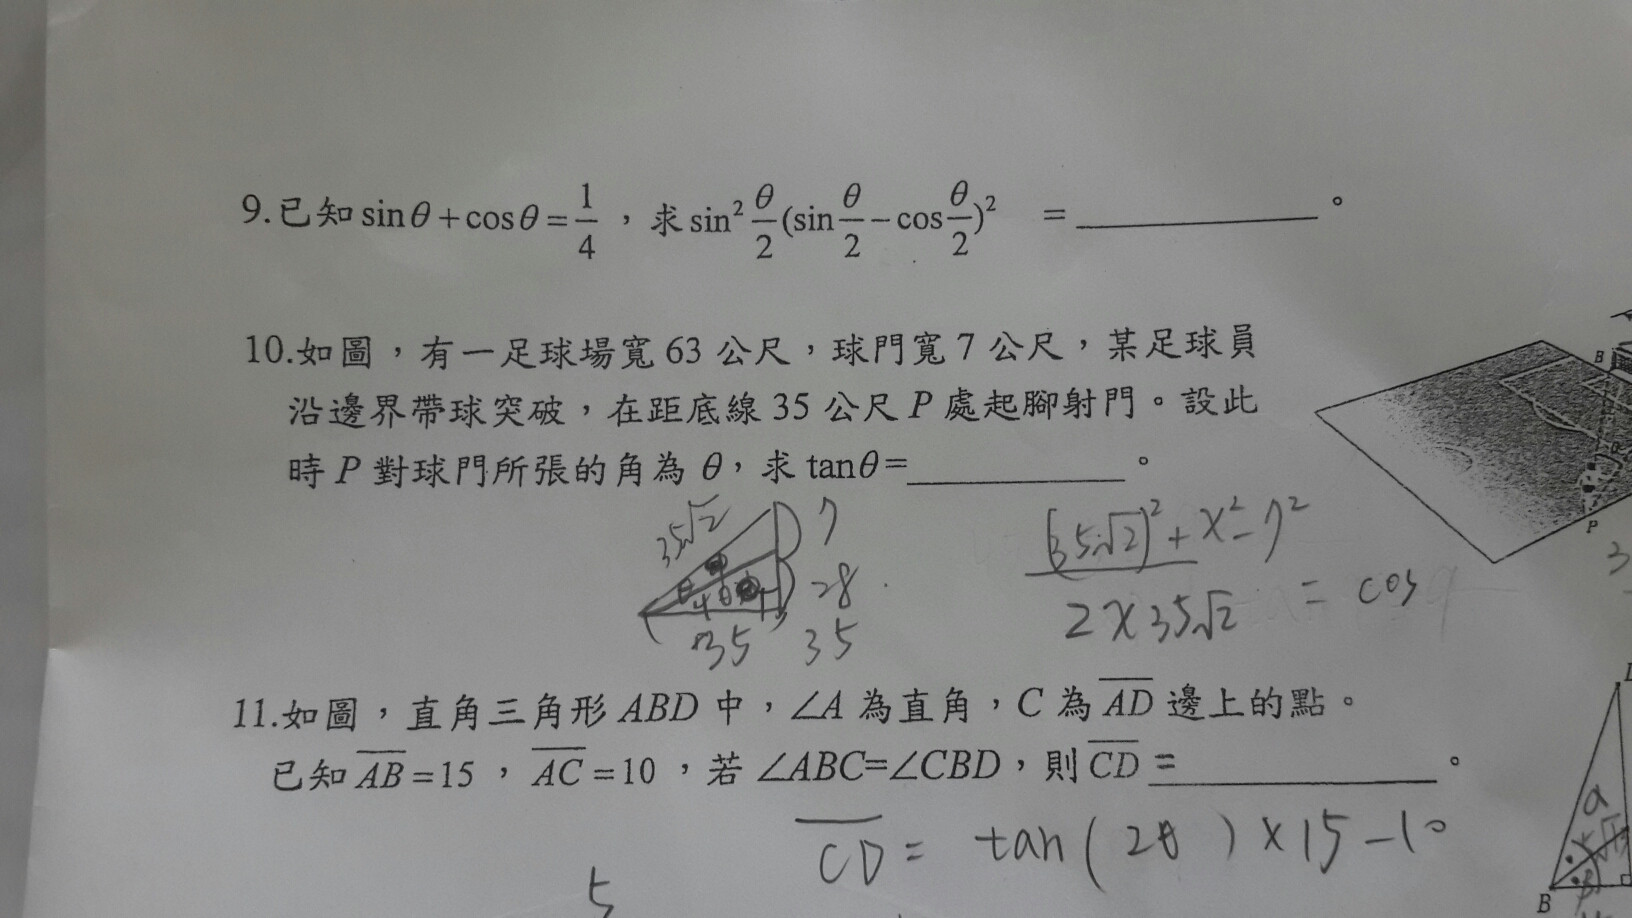 9.已知 sinθ+cosθ=1/4，求 sin²θ/2(sinθ/2−cosθ/2)² =________。
10.如圖，有一足球場寬 63 公尺，球門寬 7 公尺，某足球員
沿邊界帶球突破，在距底線 35 公尺 P 處起腳射門。設此
時 P 對球門所張的角為 θ，求 tanθ=________。
B
P
35√2
7
28
35
35
((35√2)²+x²−7²)/(2×35√2) = cos
11.如圖，直角三角形 ABD 中，∠A 為直角，C 為 A̅D̅ 邊上的點。
已知 A̅B̅=15，A̅C̅=10，若 ∠ABC=∠CBD，則 C̅D̅ =________。
C̅D̅ = tan(2θ)×15−10
a
B
5